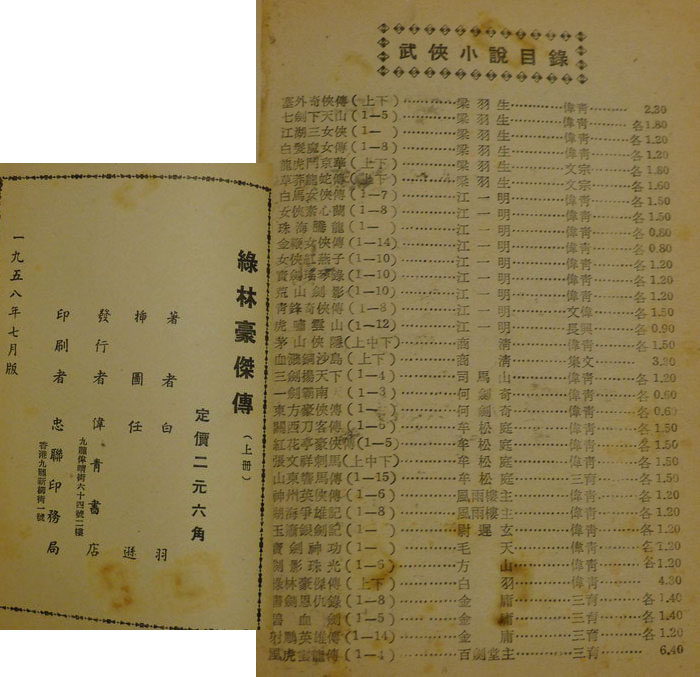 武俠小說目錄
塞外奇俠傳(上下)………梁羽生………偉青………
七劍下天山(1—5)………梁羽生………偉青………各1.80
江湖三女俠(1— )………梁羽生………偉青………各1.20
白髮魔女傳(1—8)………梁羽生………偉青………各1.20
龍虎鬥京華(上下)………梁羽生………文宗………各1.80
草莽龍蛇傳(上下)………梁羽生………文宗………各1.60
白馬女俠傳(1—7)………江一明………偉青………各1.50
女俠素心蘭(1—8)………江一明………偉青………各1.50
珠海騰龍(1— )………江一明………偉青………各0.80
金鏢女俠傳(1—14)………江一明………偉青………各0.80
女俠紅燕子(1—10)………江一明………偉青………各1.20
劍 錄(1—10)………江一明………偉青………各1.20
荒山劍影(1—10)………江一明………偉青………各1.20
青鋒奇俠傳(1—8)………江一明………文偉………各1.50
虎嘯雲山(1—12)………江一明………長興………各0.90
茅山俠隱(上中下)………商清………偉青………各1.50
血濺 沙島(上下)………商清………集文………3.20
三劍揚天下(1—4)………司馬山………偉青………各1.20
一劍霸南天(1— )………何劍奇………偉青………各0.60
東方豪俠傳(1— )………何劍奇………偉青………各0.60
關西刀客傳(1— )………牟松庭………偉青………各1.50
紅花亭豪俠傳(1—5)………牟松庭………偉青………各1.50
張文祥刺馬(上中下)………牟松庭………偉青………各1.50
山東響馬傳(1—15)………牟松庭………三育………各1.20
神州英俠傳(1—6)………風雨樓主………偉青………各1.20
湖海爭雄記(1—8)………風雨樓主………偉青………各1.20
玉簫銀劍記(1— )………尉遲玄………偉青………各1.20
寶劍神功(1— )………毛天………偉青………各1.20
劍影珠光(1—5)………方山………偉青………各1.20
綠林豪傑傳(上下)………白羽………偉青………4.30
書劍恩仇錄(1—8)………金庸………三育………各1.40
碧血劍(1—5)………金庸………三育………各1.40
射鵰英雄傳(1—14)………金庸………三育………各1.20
風虎雲龍傳(1—4)………百劍堂主………三育………6.40
綠林豪傑傳(上册)
定價二元六角
著者 白羽
插圖 任遜
發行者 偉青書店
九龍偉晴街六十四號二樓
印刷者 忠聯印務局
香港九龍新柳街一號
一九五八年七月版